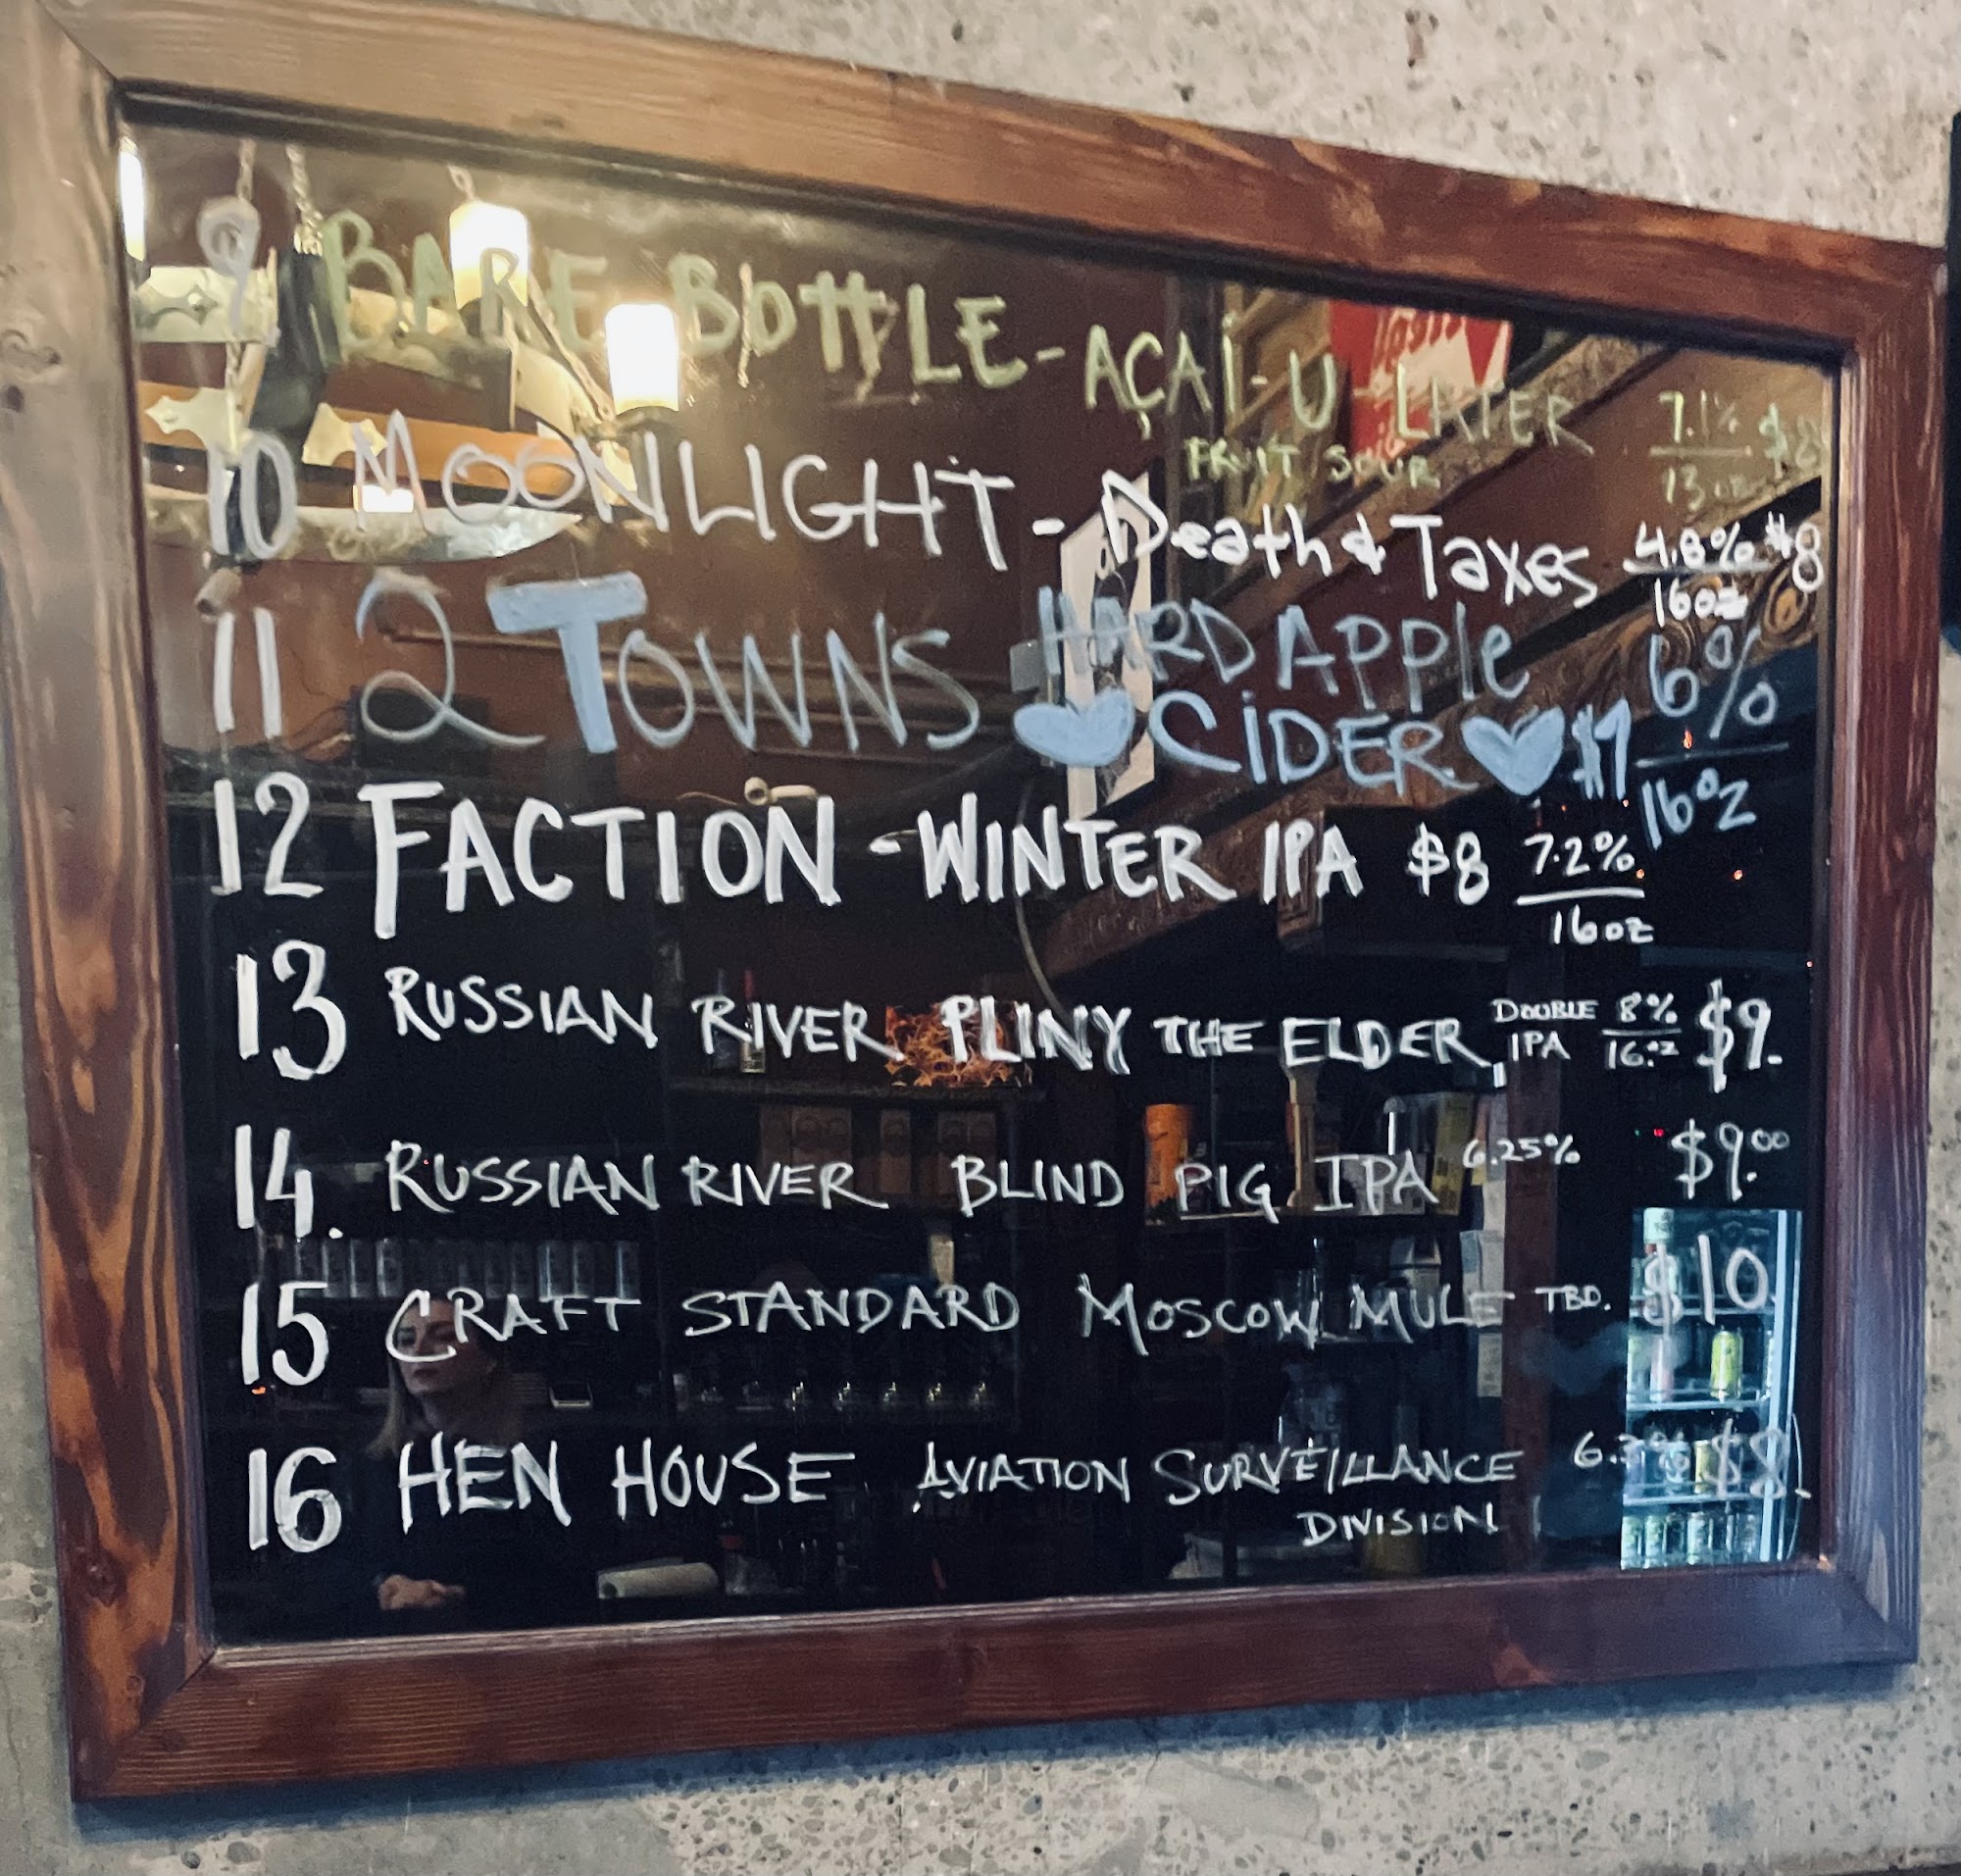 9 BARE BOTTLE - AÇAÍ-U LATER 7.1% $8
FRUIT SOUR 13oz
10 MOONLIGHT - Death & Taxes 4.8% $8
16oz
11 2 TOWNS HARD APPle 6%
CIDER $7 16oz
12 FACTION - WINTER IPA $8 7.2%
16oz
13 RUSSIAN RIVER PLINY THE ELDER DOUBLE IPA 8% 16oz $9.
14. RUSSIAN RIVER BLIND PIG IPA 6.25% $9.00
15 CRAFT STANDARD MOSCOW MULE TBD. $10
16 HEN HOUSE AVIATION SURVEILLANCE $8
DIVISION